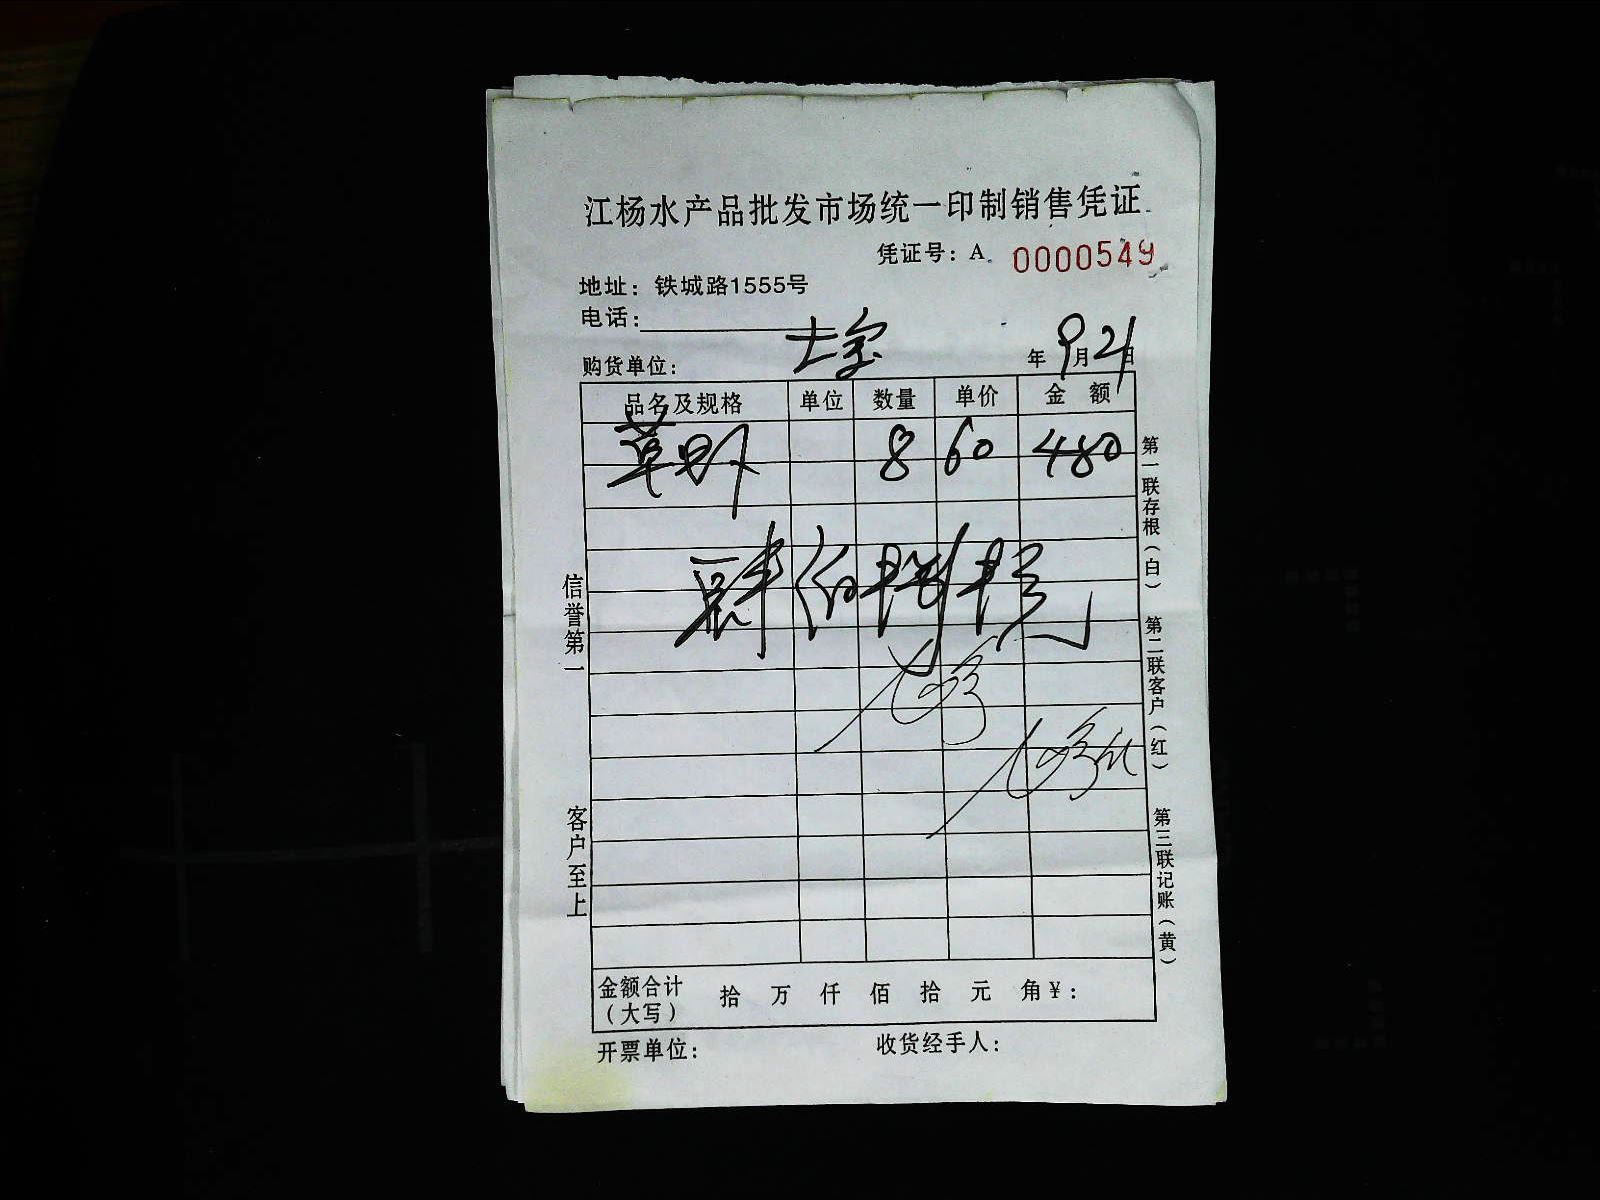 江杨水产品批发市场统一印制销售凭证
凭证号：A 0000549
地址：铁城路1555号
电话：
购货单位： 年9月21日
品名及规格 单位 数量 单价 金 额
草 8 60 480
肆佰捌拾元
金额合计（大写） 拾 万 仟 佰 拾 元 角¥：
开票单位： 收货经手人：
信誉第一
客户至上
第一联存根（白）
第二联客户（红）
第三联记账（黄）